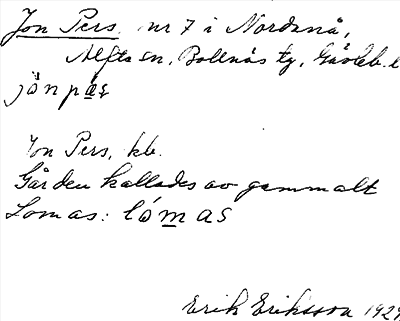 Jon Pers. nr 7 i Nordanå,
Alfta sn, Bollnäs tg, Gävleb. l
jo̊n pæ̲ş
Jon Pers, kb.
Gården kallades av gammalt
Lomas: ló̊m̲as
Erik Eriksson 1929